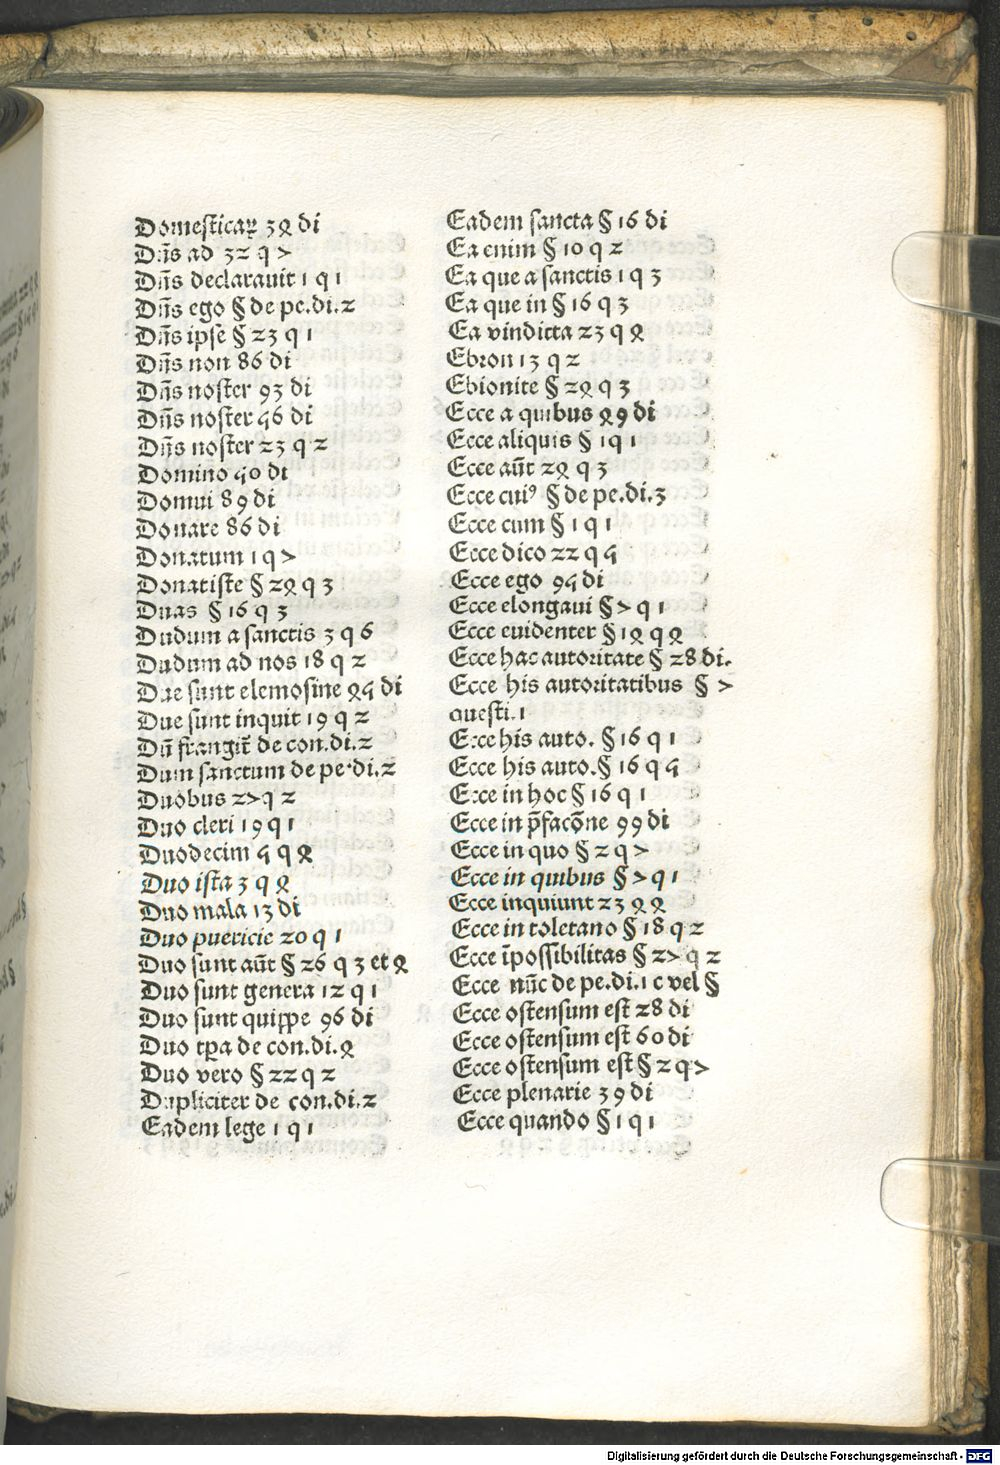 Domesticaꝝ 34 di
Dñs ad 32 q 7
Dñs declarauit 1 q 1
Dñs ego § de pe.di.2
Dñs ipse § 23 q 1
Dñs non 86 di
Dñs noster 93 di
Dñs noster 56 di
Dñs noster 23 q 2
Domino 50 di
Domui 89 di
Donare 86 di
Donatum 1 q 7
Donatiste § 24 q 3
Duas § 16 q 3
Dudum a sanctis 3 q 6
Dudum ad nos 18 q 2
Due sunt elemosine 45 di
Due sunt inquit 19 q 2
Dũ frangit̃ de con.di.2
Dum sanctum de pe.di.2
Duobus 27 q 2
Duo cleri 19 q 1
Duodecim 5 q 4
Duo ista 3 q 4
Duo mala 13 di
Duo puericie 20 q 1
Duo sunt aũt § 26 q 3 et 4
Duo sunt genera 12 q 1
Duo sunt quippe 96 di
Duo tp̃a de con.di.4
Duo vero § 22 q 2
Dupliciter de con.di.2
Eadem lege 1 q 1
Eadem sancta § 16 di
Ea enim § 10 q 2
Ea que a sanctis 1 q 3
Ea que in § 16 q 3
Ea vindicta 23 q 4
Ebron 13 q 2
Ebionite § 24 q 3
Ecce a quibus 49 di
Ecce aliquis § 1 q 1
Ecce aũt 24 q 3
Ecce cuiꝰ § de pe.di.3
Ecce cum § 1 q 1
Ecce dico 22 q 5
Ecce ego 95 di
Ecce elongaui § 7 q 1
Ecce euidenter § 14 q 4
Ecce hac autoritate § 28 di.
Ecce his autoritatibus § 7
questi.1
Ecce his auto. § 16 q 1
Ecce his auto.§ 16 q 5
Ecce in hoc § 16 q 1
Ecce in p̃facõne 99 di
Ecce in quo § 2 q 7
Ecce in quibus § 7 q 1
Ecce inquiunt 23 q 4
Ecce in toletano § 18 q 2
Ecce ĩpossibilitas § 27 q 2
Ecce nũc de pe.di.1 c vel §
Ecce ostensum est 28 di
Ecce ostensum est 60 di
Ecce ostensum est § 2 q 7
Ecce plenarie 39 di
Ecce quando § 1 q 1
Digitalisierung gefördert durch die Deutsche Forschungsgemeinschaft - DFG